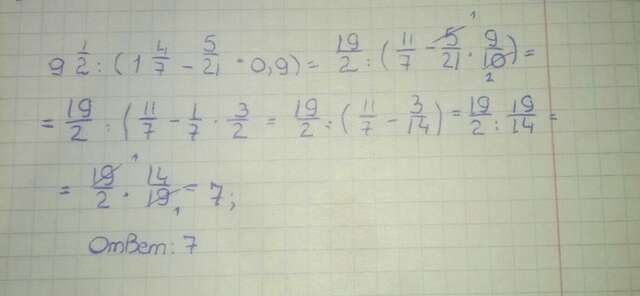 9 1/2 : (1 4/7 - 5/21 · 0,9) = 19/2 : (11/7 - 5/21 · 9/10) =
= 19/2 : (11/7 - 1/7 · 3/2 = 19/2 : (11/7 - 3/14) = 19/2 : 19/14 =
= 19/2 · 14/19 = 7;
Ответ: 7